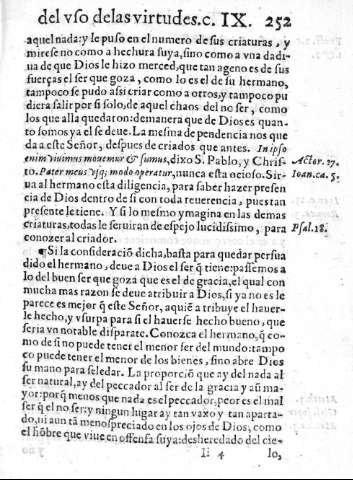 del vso delas virtudes.c. IX. 252
aquel nada: y le puso en el numero de sus criaturas, y
mirese no como a hechura suya, sino como a vna dadi-
ua de que Dios le hizo merced, que tan ageno es de sus
fuerças el ser que goza, como lo es el de su hermano,
tampoco se pudo assi criar como a otros, y tampoco pu
diera salir por si solo, de aquel chaos del no ser, como
los que alla quedaron: demanera que de Dios es quan-
to somos ya el se deue. La mesma de pendencia nos que
da a este Señor, despues de criados que antes. In ipso
enim viuimus mouemur & sumus, dixo S. Pablo, y Chris-
to. Pater meus vsq; modo operatur, nunca esta ocioso. Sir-
ua al hermano esta diligencia, para saber hazer presen
cia de Dios dentro de si con toda reuerencia, pues tan
presente le tiene. Y si lo mesmo ymagina en las demas
criaturas, todas le seruiran de espejo lucidissimo, para
conozer al criador.
Actor. 17.
Ioan. ca. 5.
Psal. 18.
¶ Si la consideraciō dicha, basta para quedar persua
dido el hermano, deue a Dios el ser q̃ tiene: passemos a
lo del buen ser que goza que es el de gracia, el qual con
mucha mas razon se deue atribuir a Dios, si ya no es le
parece es mejor q̃ este Señor, aquiē a tribuye el hauer-
le hecho, y vsurpa para si el hauerse hecho bueno, que
seria vn notable disparate. Conozca el hermano, q̃ co-
mo de si no puede tener el menor ser del mundo: tampo
co puede tener el menor de los bienes, sino abre Dios
su mano para seledar. La proporciō que ay del nada al
ser natural, ay del peccador al ser de la gracia y aũ ma-
yor: porq̃ menos que nada es el peccador, peor es el mal
ser q̃ el no ser: y ningun lugar ay tan vaxo y tan aparta-
do, ni aun tā menospreciado en los ojos de Dios, como
el hōbre que viue en offensa suya: desheredado del cie-
Ii 4 lo,